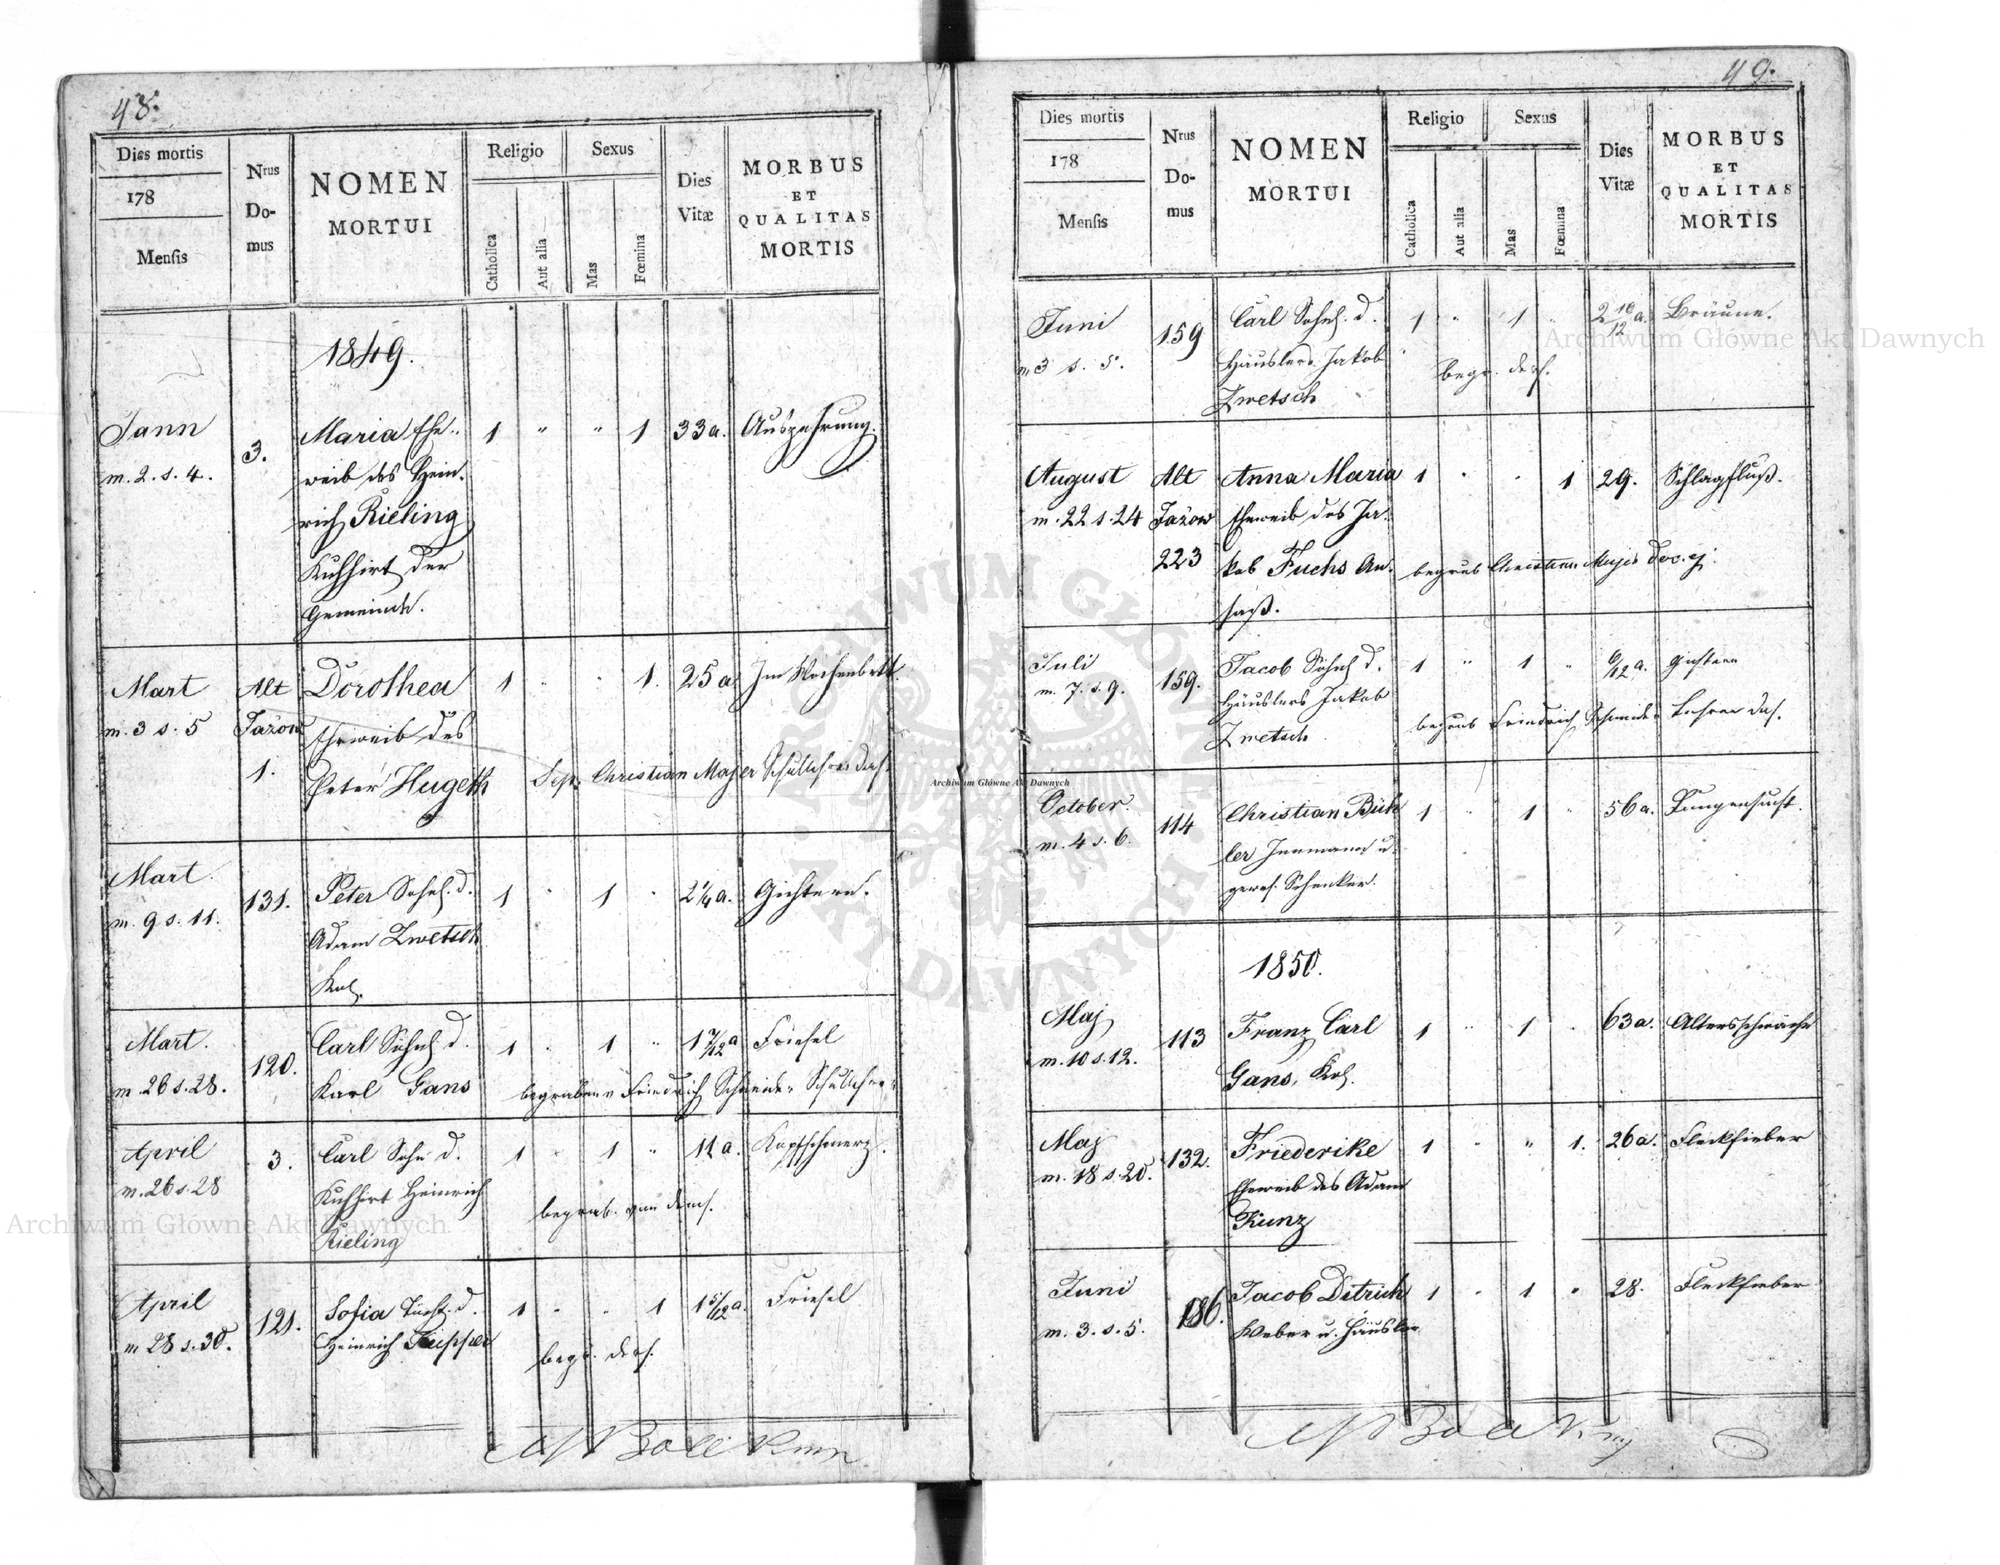 48.
Dies mortis
178
Mensis
Nrus Do-mus
NOMEN
MORTUI
Religio
Catholica
Aut alia
Sexus
Mas
Fœmina
Dies
Vitæ
MORBUS
ET
QUALITAS
MORTIS
1849.
Jann
m. 2. s. 4.
3.
Maria Ehe-
weib des Hein-
rich Rieling
Kuhhirt der
Gemeinde.
1 " " 1 33 a. Auszehrung.
Mart
m. 3 s. 5
Alt
Jażow
1.
Dorothea
Eheweib des
Peter Hugeth
1 " " 1. 25 a Im Wochenbett.
Sep. Christian Majer Schullehrer das.
Mart.
m. 9 s. 11.
131.
Peter Sohn d.
Adam Zwetsch
Kol.
1 " 1 " 2 1/4 a. Gichtern.
Mart.
m. 26 s. 28.
120.
Carl Sohn d.
Karl Gans
1 " 1 " 1 7/12 a Friesel
begraben v Friedrich Schneider Schullehrer
April
m. 26 s. 28
3.
Carl Sohn d.
Kuhhirt Heinrich
Rieling
1 " 1 " 11 a. Kopfschmerz.
begrab. von dems.
April
m 28 s. 30.
121.
Sofia Tocht. d.
Heinrich
1 " " 1 1 5/12 a. Friesel
begr. ders.
49.
Dies mortis
178
Mensis
Nrus Do-mus
NOMEN
MORTUI
Religio
Catholica
Aut alia
Sexus
Mas
Fœmina
Dies
Vitæ
MORBUS
ET
QUALITAS
MORTIS
Juni
m 3 s. 5.
159
Carl Sohn d.
Häuslers Jakob
Zwetsch
1 " 1 " 2 10/12 a. Bräune.
begr. ders.
August
m. 22 s. 24
Alt
Jażow
223
Anna Maria
Eheweib des Ja-
kob Fuchs An-
saß.
1 " " 1 29. Schlagfluß.
begrub Christian Majer
Juli
m. 7. s. 9.
159.
Jacob Sohn d.
Häuslers Jakob
Zwetsch
1 " 1 " 6/12 a. Gichtern
begrub Friedrich Schneider Lehrer das.
October.
m. 4 s. 6.
114
Christian Büh
ler Inmann u.
gewes. Schenker.
1 " 1 " 56 a. Lungensucht.
1850.
Maj
m. 10 s. 12.
113
Franz Carl
Gans, Kol.
1 " 1 " 63 a. Altersschwäche
Maj
m. 18 s. 20.
132.
Friederike
Eheweib des Adam
Kunz
1 " " 1. 26 a. Fleckfieber
Juni
m. 3. s. 5.
186.
Jacob Ditrich
Weber u. Häusler
1 " 1 " 28. Fleckfieber
Archiwum Główne Akt Dawnych
Archiwum Główne Akt Dawnych
Archiwum Główne Akt Dawnych
ARCHIWUM GŁÓWNE AKT DAWNYCH